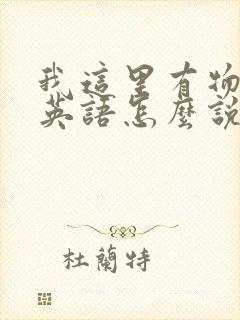 我這里有物
英語怎麼說
杜蘭特